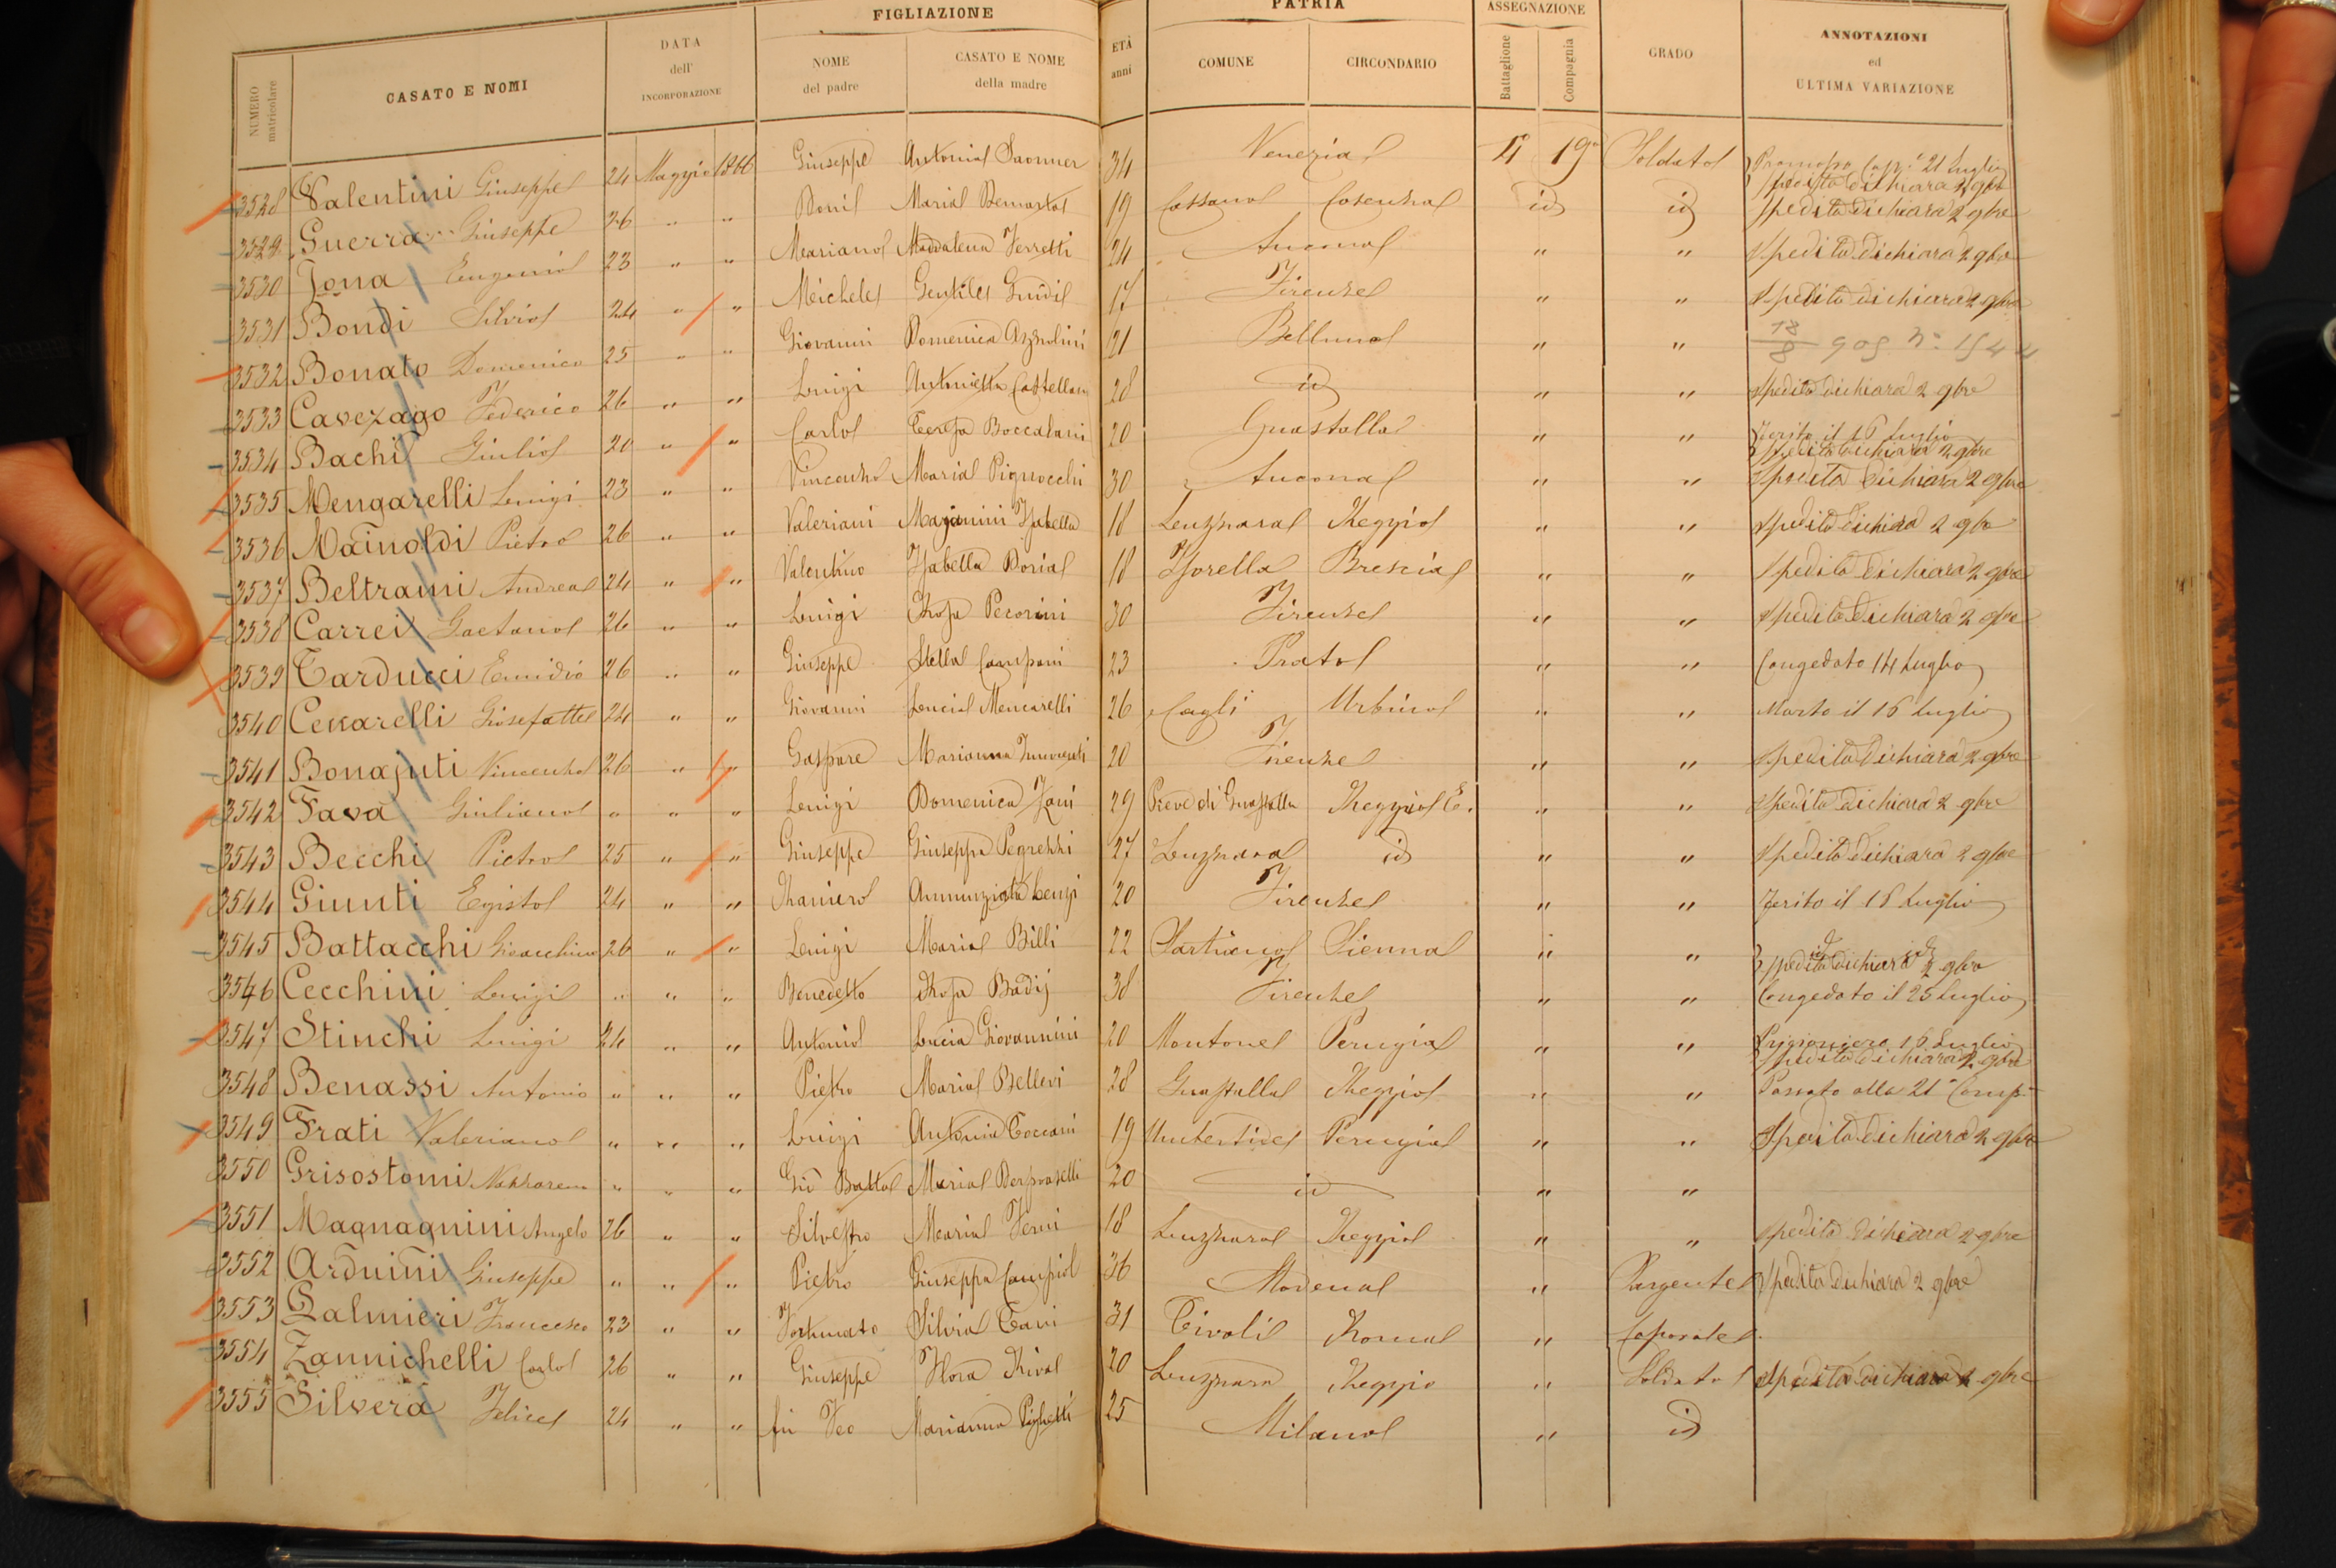 FIGLIAZIONE PATRIA ASSEGNAZIONE
NUMERO matricolare CASATO E NOMI DATA dell' INCORPORAZIONE NOME del padre CASATO E NOME della madre ETÀ anni COMUNE CIRCONDARIO Battaglione Compagnia GRADO ANNOTAZIONI ed ULTIMA VARIAZIONE
3528 Valentini Giuseppe 24 Maggio 1866 Giuseppe Antonia 34 Venezia 4 19ª Soldato Promosso Cap. 21 Luglio Spedita dichiara 2 9bre
3529 Guerra Giuseppe 26 " " Maria 19 Cassano Cosenza id id Spedita dichiara 2 9bre
3530 Jona Eugenio 23 " " Mariano Maddalena Ferretti 24 Ancona " " Spedita dichiara 2 9bre
3531 Bondi Silvio 24 " " Michele Gentile 17 Firenze " " Spedita dichiara 2 9bre
3532 Bonato Domenico 25 " " Giovanni Domenica Azzolini 21 Belluno " " 18/8 905 N° 1544
3533 Cavezzago Federico 26 " " Luigi Antonietta Castellani 28 id " " Spedita dichiara 2 9bre
3534 Bachi Giulio 20 " " Carlo Teresa Boccalari 20 Guastalla " " Ferito il 16 Luglio Spedita dichiara 2 9bre
3535 Mengarelli Luigi 23 " " Vincenzo Maria Pignocchi 30 Ancona " " Spedita dichiara 2 9bre
3536 Mainoldi Pietro 26 " " Valeriani Isabella 18 Luzzara Reggio " " Spedita dichiara 2 9bre
3537 Beltrami Andrea 24 " " Valentino Isabella Doria 18 Brescia " " Spedita dichiara 2 9bre
3538 Carrei Gaetano 26 " " Luigi Rosa Pecorini 30 Firenze " " Spedita dichiara 2 9bre
3539 Tarducci Emidio 26 " " Giuseppe Stella Campani 23 Prato " " Congedato 14 Luglio
3540 Ceccarelli Giosefatte 24 " " Giovanni Lucia Mencarelli 26 Cagli Urbino " " Morto il 16 Luglio
3541 Bonajuti Vincenzo 26 " " Gaspare Marianna Innocenti 20 Firenze " " Spedita dichiara 2 9bre
3542 Fava Giuliano " " " Luigi Domenica Zani 29 Pieve di Guastalla Reggio E. " " Spedita dichiara 2 9bre
3543 Becchi Pietro 25 " " Giuseppe Giuseppa 27 Luzzara id " " Spedita dichiara 2 9bre
3544 Giunti Egisto 24 " " Raniero Annunziata 20 Firenze " " Ferito il 16 Luglio
3545 Battacchi Gioacchino 26 " " Luigi Maria Billi 22 Sarteano Sienna " " id id Spedita dichiara 2 9bre
3546 Cecchini Luigi " " " Benedetto Rosa Badij 38 Firenze " " Congedato il 25 Luglio
3547 Stinchi Luigi 24 " " Antonio Lucia Giovannini 20 Montone Perugia " " Prigioniero 16 Luglio Spedita dichiara 2 9bre
3548 Benassi Antonio " " " Pietro Maria Bellevi 28 Guastalla Reggio " " Passato alla 21ª Comp.
3549 Frati Valeriano " " " Luigi Antonia 19 Umbertide Perugia " " Spedita dichiara 2 9bre
3550 Grisostomi Nazzareno " " " Gio Batta Maria 20 id " "
3551 Magnagnini Angelo 26 " " Silvestro Maria 18 Luzzara Reggio " " Spedita dichiara 2 9bre
3552 Arduini Giuseppe " " " Pietro Giuseppa 36 Modena " Sargente Spedita dichiara 2 9bre
3553 Palmieri Francesco 23 " " Fortunato Silvia Tani 31 Tivoli Roma " Caporale
3554 Zannichelli Carlo 26 " " Giuseppe Flora Riva 20 Luzzara Reggio " Soldato Spedita dichiara 2 9bre
3555 Silvera Felice 24 " " fu Marianna 25 Milano " id